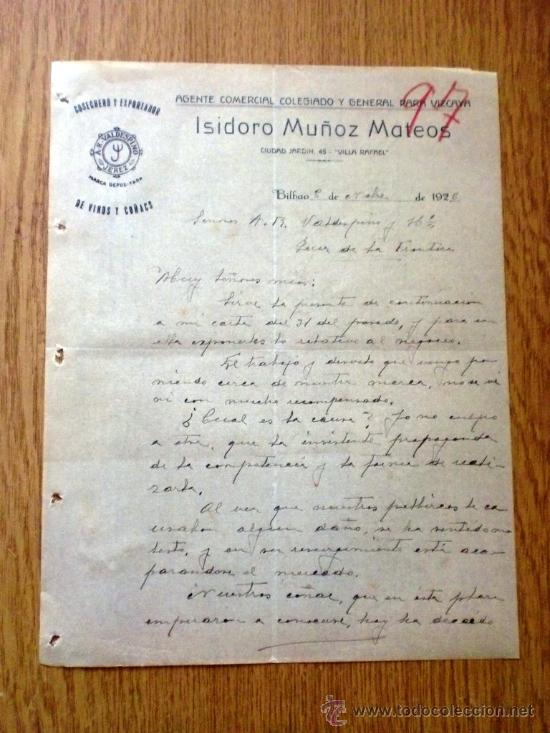 COSECHERO Y EXPORTADOR
A.R. VALDESPINO
JEREZ
MARCA DEPOSITADA
DE VINOS Y COÑACS
AGENTE COMERCIAL COLEGIADO Y GENERAL PARA VIZCAYA
97
Isidoro Muñoz Mateos
CIUDAD JARDIN, 45 - "VILLA RAFAEL"
Bilbao 2 de Nbre. de 1926
Señores A. R. Valdespino y Hº
Jerez de la Frontera
Muy Señores mios:
Sirve la presente de continuacion
a mi carta del 31 del pasado, y para en
ella exponerles lo relativo al negocio.
El trabajo y desvelo que vengo po
niendo cerca de nuestra marca, no se vé
ni con mucho recompensado.
¿Cual es la causa? Yo no culpo
a otra, que la insistente propaganda
de la competencia y la forma de reali-
zarla.
Al ver que nuestros productos le ca
usaban algun daño, se ha sentido mo
lesto, y en su resurgimiento está aca
parandose el mercado.
Nuestros coñac, que en esta plaza
empezaron a conocerse, hoy ha decaido
www.todocoleccion.net